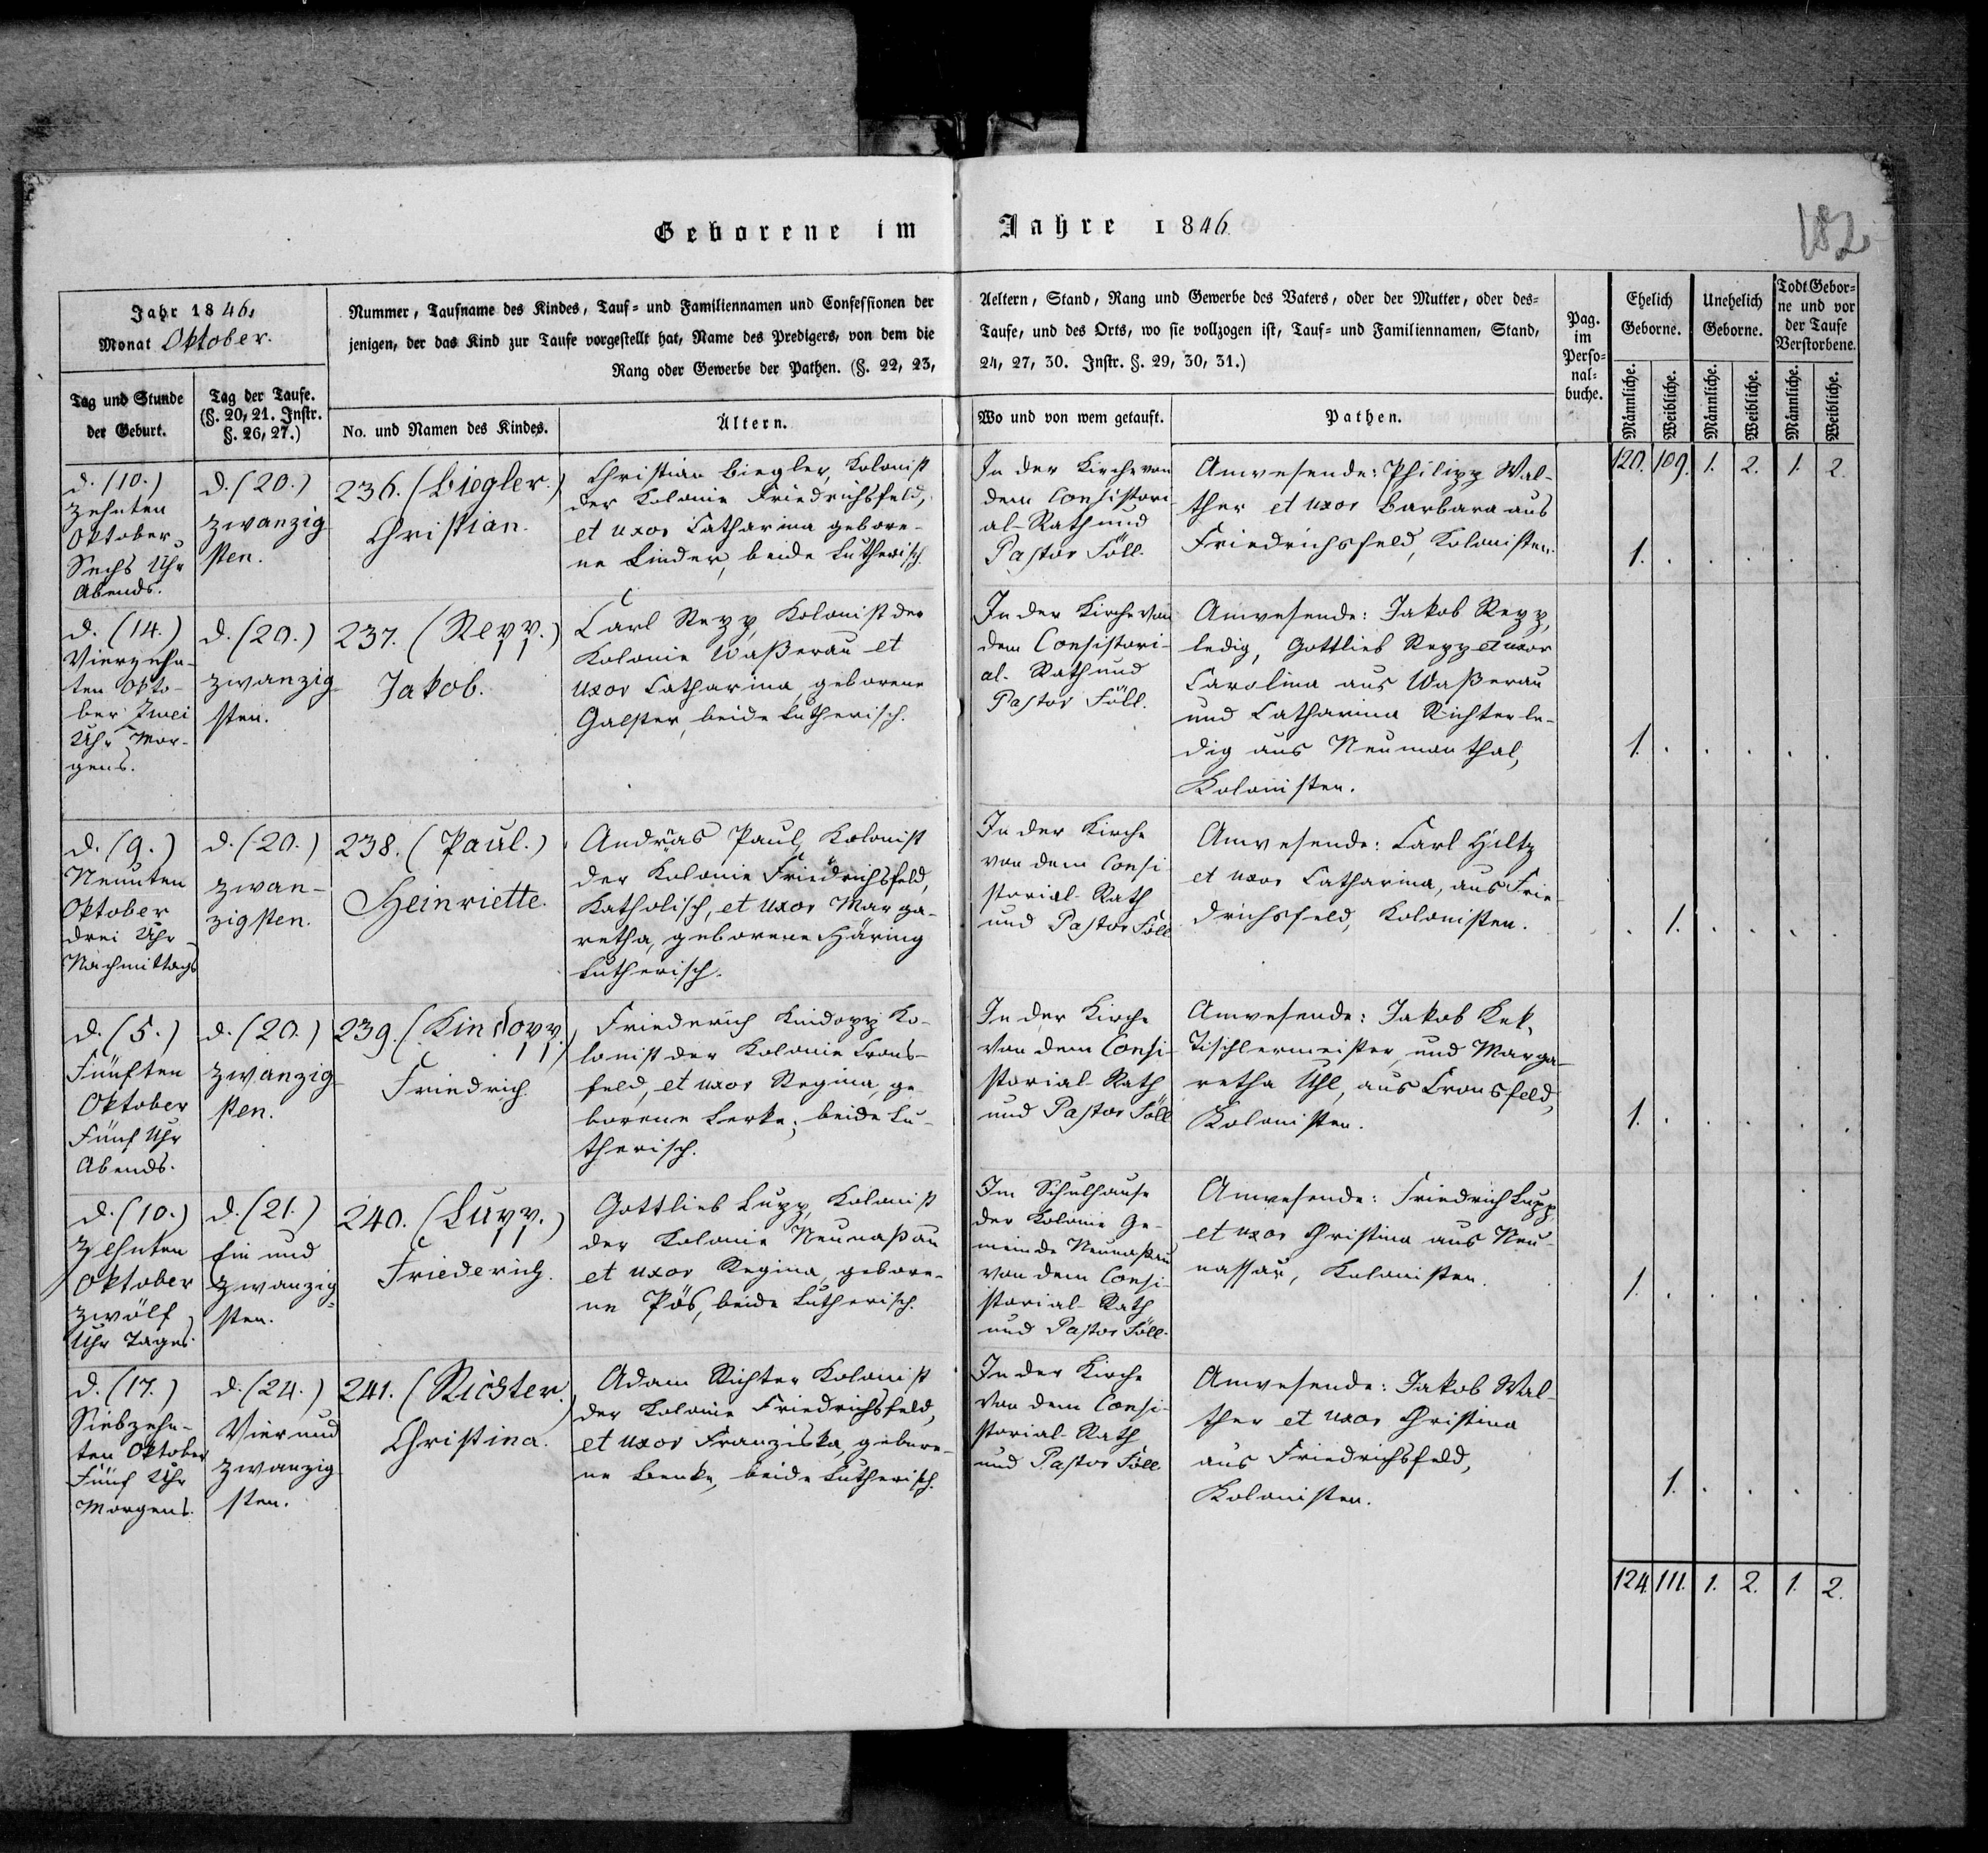 Geborene im Jahre 1846.
182
Jahr 1846.
Monat Oktober.
Nummer, Taufname des Kindes, Tauf- und Familiennamen und Confessionen der
jenigen, der das Kind zur Taufe vorgestellt hat, Name des Predigers, von dem die
Rang oder Gewerbe der Pathen. (§. 22, 23,
Aeltern, Stand, Rang und Gewerbe des Vaters, oder der Mutter, oder des-
Taufe, und des Orts, wo sie vollzogen ist, Tauf- und Familiennamen, Stand,
24, 27, 30. Instr. §. 29, 30, 31.)
Pag.
im
Perso-
nal-
buche.
Ehelich
Geborne.
Unehelich
Geborne.
Todt Gebor-
ne und vor
der Taufe
Verstorbene.
Tag und Stunde
der Geburt.
Tag der Taufe.
(§. 20, 21. Instr.
§. 26, 27.)
No. und Namen des Kindes.
Ältern.
Wo und von wem getauft.
Pathen.
Männliche.
Weibliche.
Männliche.
Weibliche.
Männliche.
Weibliche.
120. 109. 1. 2. 1. 2.
d. (10.)
Zehnten
Oktober
Sechs Uhr
Abends.
d. (20.)
zwanzig
sten.
236. (Biegler.)
Christian.
Christian Biegler, Kolonist
der Kolonie Friedrichsfeld,
et uxor Catharina gebore-
ne Linder, beide Lutherisch.
In der Kirche von
dem Consistori-
al-Rath und
Pastor Föll.
Anwesende: Philipp Wal-
ther et uxor Barbara aus
Friedrichsfeld, Kolonisten.
1. . . . . .
d. (14.)
Vierzehn-
ten Okto-
ber Zwei
Uhr Mor-
gens.
d. (20.)
zwanzig
sten.
237. (Repp.)
Jakob.
Carl Repp, Kolonist der
Kolonie Waßerau et
uxor Catharina, geborene
Galster, beide Lutherisch.
In der Kirche von
dem Consistori-
al-Rath und
Pastor Föll.
Anwesende: Jakob Repp,
ledig, Gottlieb Repp et uxor
Carolina aus Waßerau
und Catharina Richter le-
dig aus Neumonthal,
Kolonisten.
1. . . . . .
d. (9.)
Neunten
Oktober
drei Uhr
Nachmittags
d. (20.)
zwan-
zigsten.
238. (Paul.)
Heinriette.
Andräas Paul, Kolonist
der Kolonie Friedrichsfeld,
Katholisch, et uxor Marga-
retha, geborene Häring
Lutherisch.
In der Kirche
von dem Consi-
storial-Rath
und Pastor Föll
Anwesende: Carl Hiltz
et uxor Catharina, aus Frie-
drichsfeld, Kolonisten.
. 1. . . . .
d. (5.)
Fünften
Oktober
Fünf Uhr
Abends.
d. (20.)
zwanzig
sten.
239. (Kindopp.)
Friedrich.
Friederich Kindopp Ko-
lonist der Kolonie Crons-
feld, et uxor Regina, ge-
borene Lerke, beide Lu-
therisch.
In der Kirche
von dem Consi-
storial-Rath
und Pastor Föll
Anwesende: Jakob Kek,
Tischlermeister, und Marga-
retha Uhl, aus Cronsfeld,
Kolonisten.
1. . . . . .
d. (10.)
Zehnten
Oktober
zwölf
Uhr Tages.
d. (21.)
Ein und
zwanzig-
sten.
240. (Lupp.)
Friederich.
Gottlieb Lupp, Kolonist
der Kolonie Neunaßau
et uxor Regina, gebore-
ne Pös, beide Lutherisch.
Im Schulhause
der Kolonie Ge-
meinde Neunaßau
von dem Consi-
storial-Rath
und Pastor Föll.
Anwesende: Friedrich Lupp
et uxor Christina aus Neu-
nassau, Kolonisten.
1. . . . . .
d. (17.)
Siebzehn-
ten Oktober
Fünf Uhr
Morgens.
d. (24.)
Vier und
zwanzig
sten.
241. (Richter.)
Christina.
Adam Richter Kolonist
der Kolonie Friedrichsfeld,
et uxor Franziska, gebore-
ne Benke, beide Lutherisch.
In der Kirche
von dem Consi-
storial-Rath
und Pastor Föll
Anwesende: Jakob Wal-
ther et uxor Christina
aus Friedrichsfeld,
Kolonisten.
1. . . . .
124. 111. 1. 2. 1. 2.